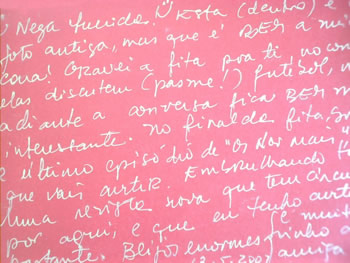 Nega querida. Esta (dentro) é
foto antiga, mas que é BER a mi
cona! Gravei a fita pra ti no com
elas discutem (pasme!) futebol, m
adiante a conversa fica BER m
interessante. No final da fita, gr
o último episódio de "Os Nor mais"
que vais curtir. Embrulhando
uma revista nova que tem circu
por aqui, e que eu tenho curt
bastante. Beijos enormes, finho a
12.5.2002 amiga